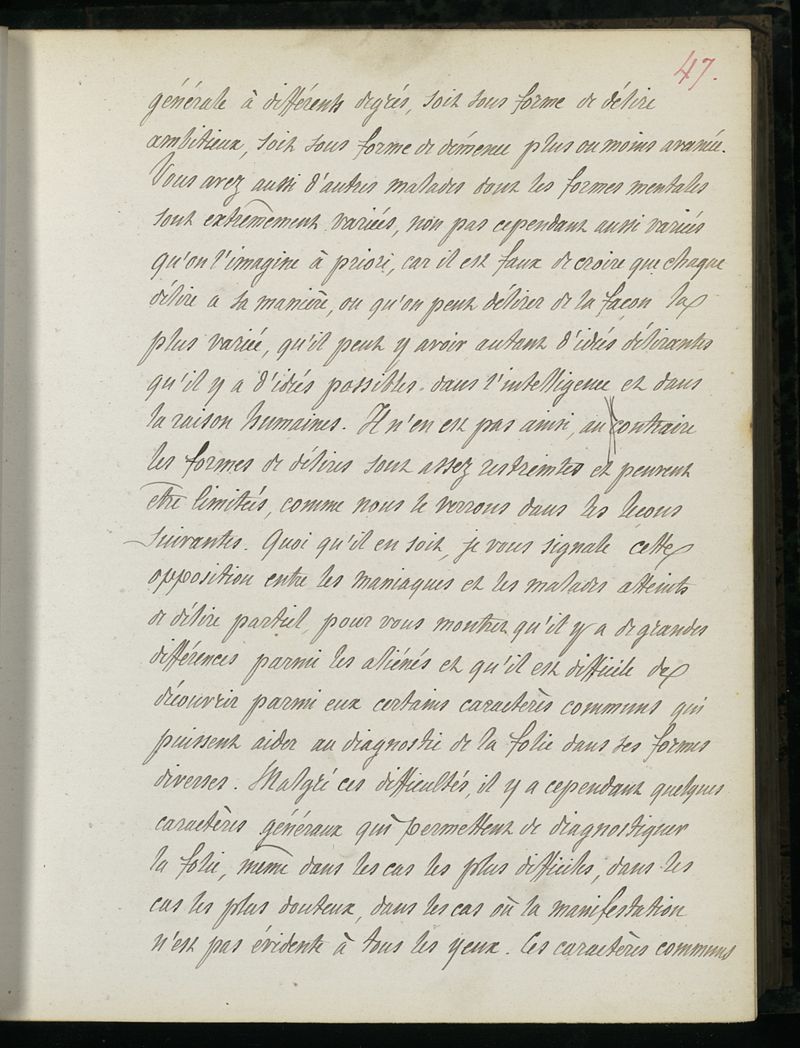 47.
générale à différents degrés, soit sous forme de délire
ambitieux, soit sous forme de démence plus ou moins avancée.
Vous avez aussi d'autres malades dont les formes mentales
sont extrêmement variées, non pas cependant aussi variées
qu'on l'imagine à priori, car il est faux de croire que chaque
délire a sa manière, ou qu'on peut délirer de la façon la
plus variée, qu'il peut y avoir autant d'idées délirantes
qu'il y a d'idées possibles dans l'intelligence et dans
la raison humaines. Il n'en est pas ainsi, au contraire
les formes de délires sont assez restreintes et peuvent
être limitées, comme nous le verrons dans les leçons
suivantes. Quoi qu'il en soit, je vous signale cette
opposition entre les maniaques et les malades atteints
de délire partiel, pour vous montrer qu'il y a de grandes
différences parmi les aliénés et qu'il est difficile de
découvrir parmi eux certains caractères communs qui
puissent aider au diagnostic de la folie dans ses formes
diverses. Malgré ces difficultés, il y a cependant quelques
caractères généraux qui permettent de diagnostiquer
la folie, même dans les cas les plus difficiles, dans les
cas les plus douteux, dans les cas où la manifestation
n'est pas évidente à tous les yeux. Ces caractères communs